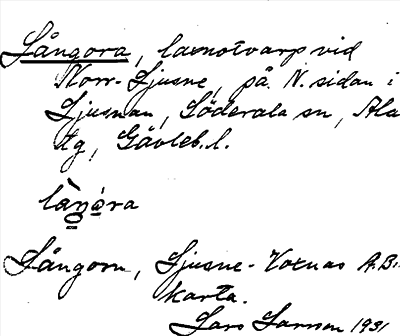 Långora, laxnotvarp vid
Norr-Ljusne, på N. sidan i
Ljusnan, Söderala sn, Ala
tg, Gävleb. l.
Långorn, Ljusne-Voxnas A.B:
karta.
Lars Larsson 1931